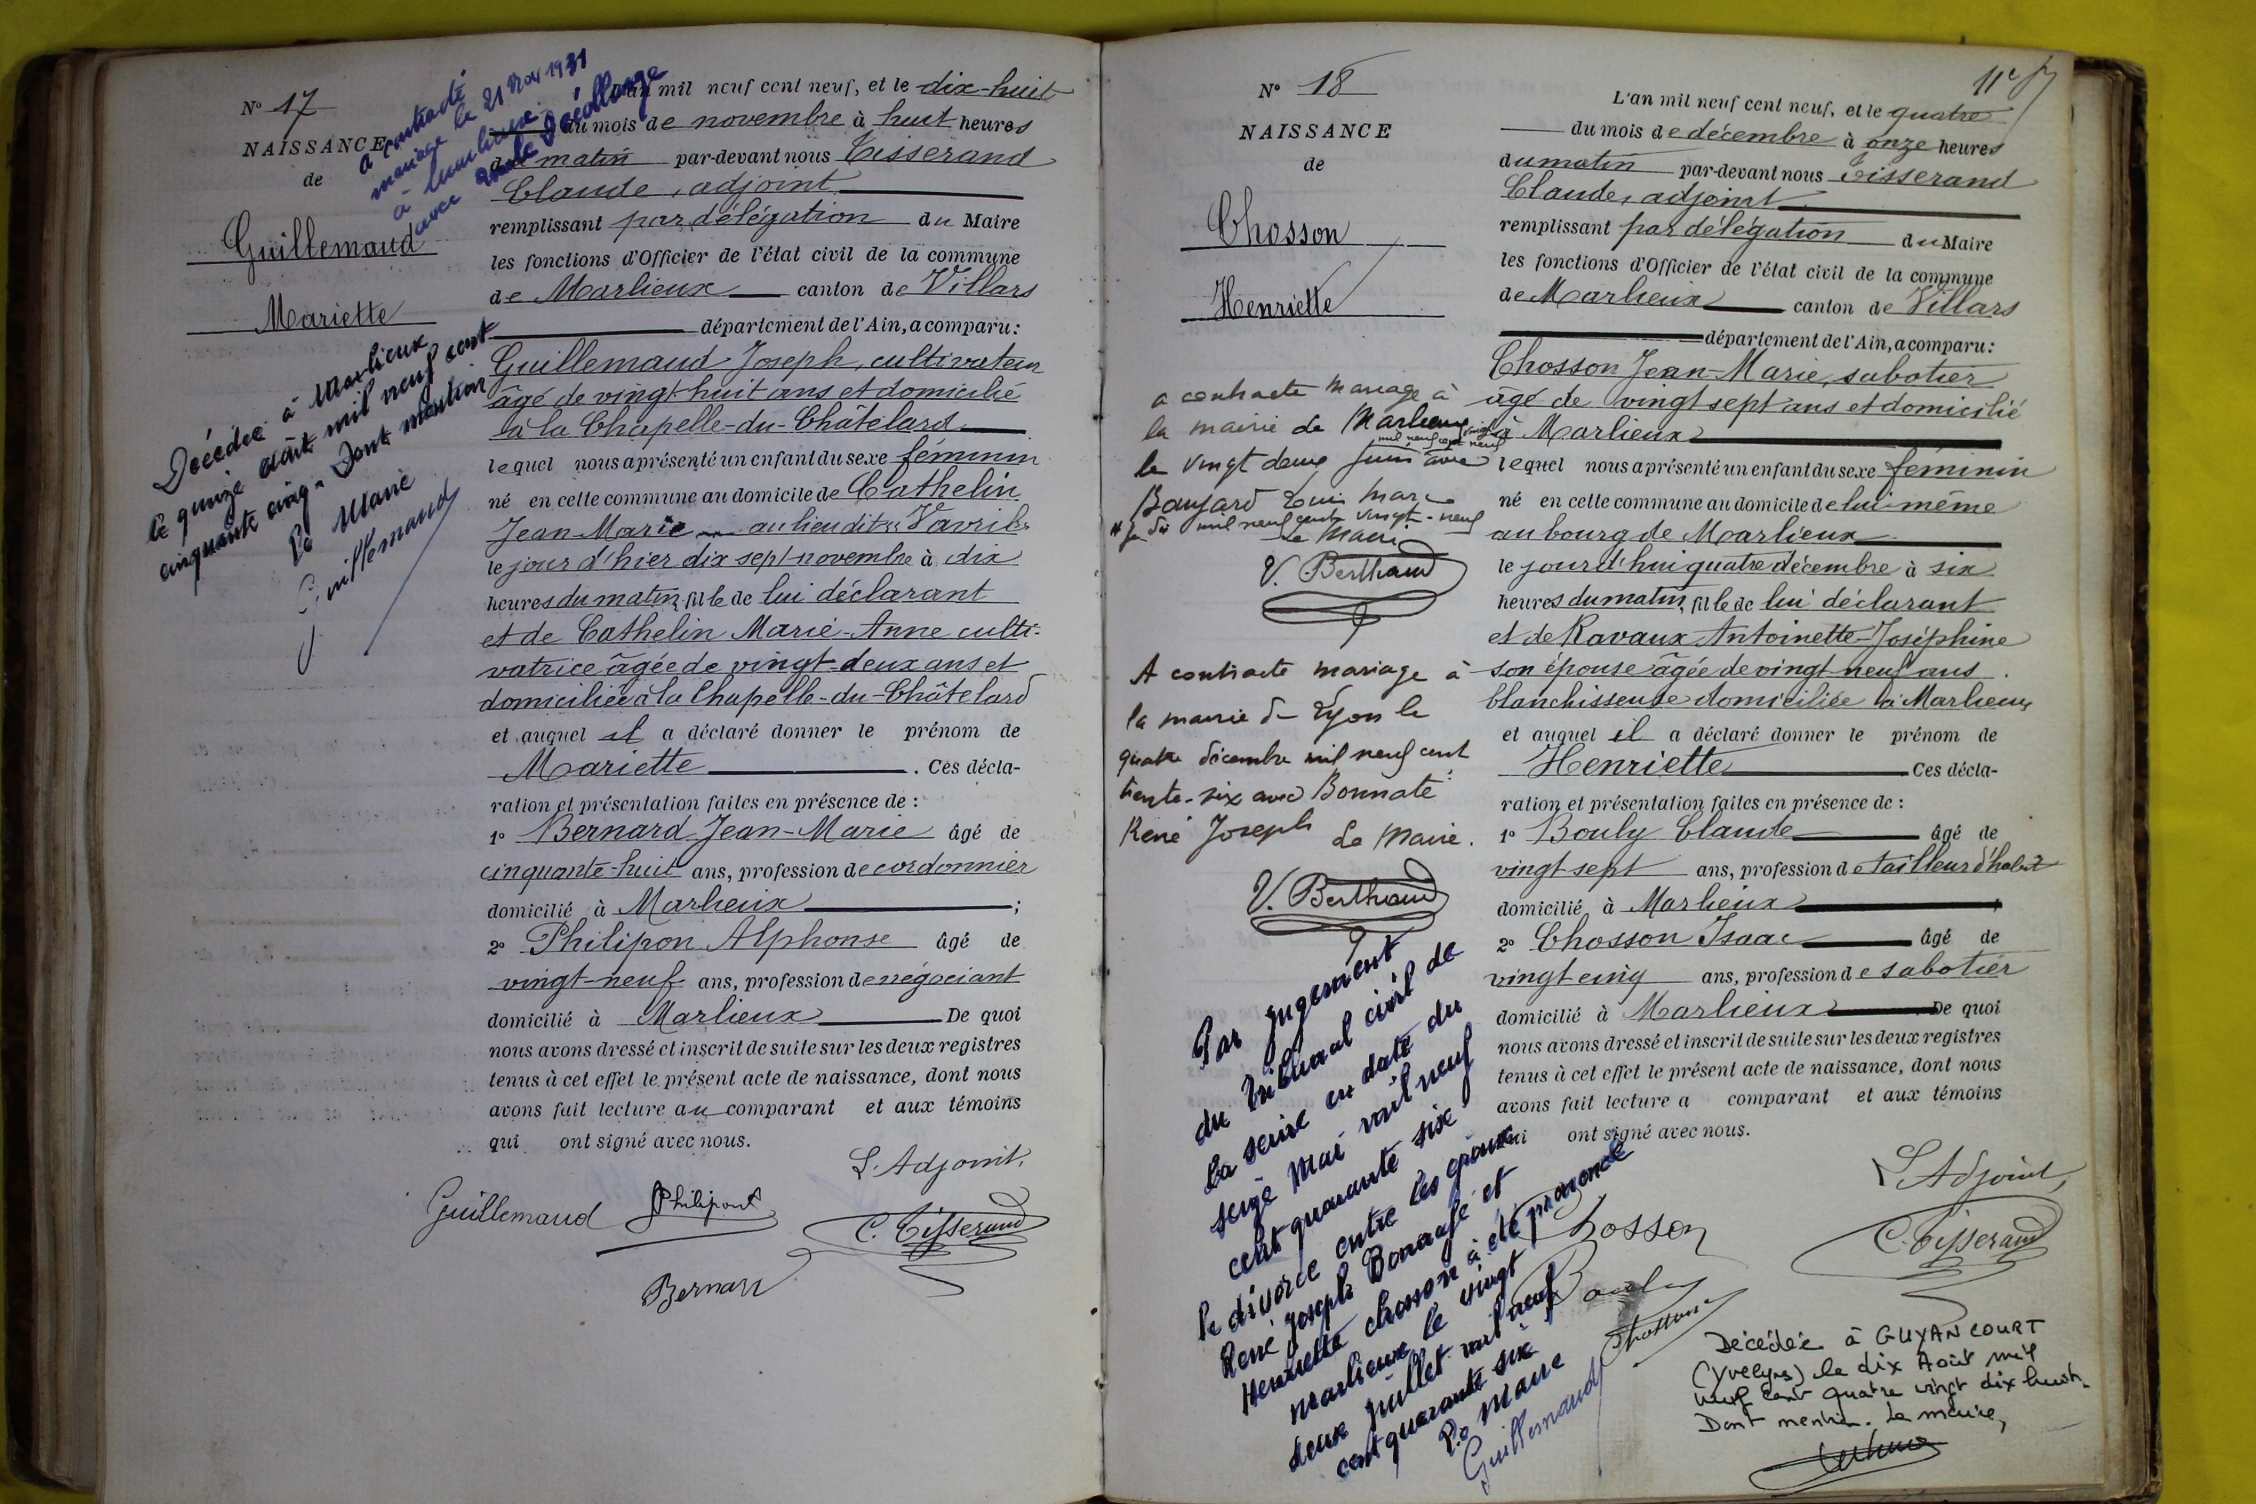 N° 17
NAISSANCE
de
Guillemaud
Mariette
a contracté
mariage le 21 Nov 1931
à Marlieux
avec
Décédée à Marlieux
le quinze août mil neuf cent
cinquante cinq. Dont mention
Le Maire
Guillemaud
L'an mil neuf cent neuf, et le dix-huit
du mois de novembre à huit heures
du matin par-devant nous Tisserand
Claude, adjoint
remplissant par délégation du Maire
les fonctions d'Officier de l'état civil de la commune
de Marlieux canton de Villars
département de l'Ain, a comparu:
Guillemaud Joseph, cultivateur
âgé de vingt-huit ans et domicilié
à la Chapelle-du-Châtelard
lequel nous a présenté un enfant du sexe féminin
né en cette commune au domicile de Cathelin
Jean Marie au lieu dit "Vavril"
le jour d'hier dix sept novembre à dix
heures du matin, fille de lui déclarant
et de Cathelin Marie-Anne culti-
vatrice âgée de vingt-deux ans et
domiciliée à la Chapelle-du-Châtelard
et auquel il a déclaré donner le prénom de
Mariette. Ces décla-
ration et présentation faites en présence de :
1° Bernard Jean-Marie âgé de
cinquante-huit ans, profession de cordonnier
domicilié à Marlieux ;
2° Philipon Alphonse âgé de
vingt-neuf ans, profession de négociant
domicilié à Marlieux De quoi
nous avons dressé et inscrit de suite sur les deux registres
tenus à cet effet le présent acte de naissance, dont nous
avons fait lecture au comparant et aux témoins
qui ont signé avec nous.
L'Adjoint,
Guillemaud Philipon C. Tisserand
Bernard
11e
N° 18
NAISSANCE
de
Chosson
Henriette
a contracté mariage à
la mairie de Marlieux
le vingt deux juin avec
Bougard Louis Marc
mil neuf cent vingt-neuf
Le Maire
V. Berthaud
A contracté mariage à
la mairie de Lyon le
quatre décembre mil neuf cent
trente-six avec Bonnate
René Joseph Le Maire.
V. Berthaud
Par jugement
du tribunal civil de
la Seine en date du
seize Mai mil neuf
cent quarante six
le divorce entre les époux
René Joseph Bonnafé et
Henriette Chosson à été prononcé
Marlieux le vingt
deux juillet mil neuf
cent quarante six
Le Maire
Guillemaud
L'an mil neuf cent neuf, et le quatre
du mois de décembre à onze heures
du matin par-devant nous Tisserand
Claude, adjoint
remplissant par délégation du Maire
les fonctions d'Officier de l'état civil de la commune
de Marlieux canton de Villars
département de l'Ain, a comparu:
Chosson Jean-Marie, sabotier
âgé de vingt sept ans et domicilié
à Marlieux
lequel nous a présenté un enfant du sexe féminin
né en cette commune au domicile de lui-même
au bourg de Marlieux
le jour d'hui quatre décembre à six
heures du matin, fille de lui déclarant
et de Ravaux Antoinette-Joséphine
son épouse âgée de vingt neuf ans
blanchisseuse domiciliée à Marlieux
et auquel il a déclaré donner le prénom de
Henriette Ces décla-
ration et présentation faites en présence de :
1° Bouly Claude âgé de
vingt sept ans, profession de tailleur d'habit
domicilié à Marlieux ;
2° Chosson Isaac âgé de
vingt cinq ans, profession de sabotier
domicilié à Marlieux De quoi
nous avons dressé et inscrit de suite sur les deux registres
tenus à cet effet le présent acte de naissance, dont nous
avons fait lecture a comparant et aux témoins
qui ont signé avec nous.
L'Adjoint,
Chosson
C. Tisserand
Bouly
Chosson
Décédée à GUYANCOURT
(Yvelynes) le dix Août mil
neuf cent quatre vingt dix huit.
Dont mention. Le maire,